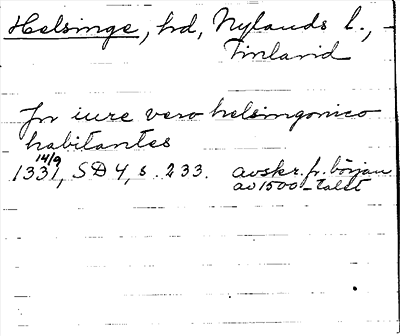 Helsinge, hd, Nylands l.,
Finland
In iure vero helsingonico
habitantes
14/9
1331, SD 4, s. 233. avskr. fr. början
av 1500-talet